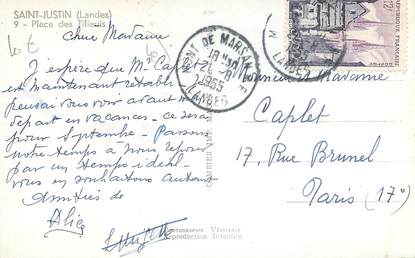 SAINT-JUSTIN (Landes)
9 - Place des Tilleuls
Chère Madame
J'espère que Mr Caplet
est maintenant rétabli
pensais vous voir avant mon
départ en vacances. ce sera
pour Septembre - Passons
notre temps à nous reposer
par un temps idéal
vous en souhaitons autant
Amitiés de
Alice
MONT DE MARSAN
18 H 30
1955
LANDES
12
Monsieur Madame
Caplet
17, Rue Brunel
Paris (17e)
COMBIER IMP.
Photographie Véritable
Reproduction Interdite